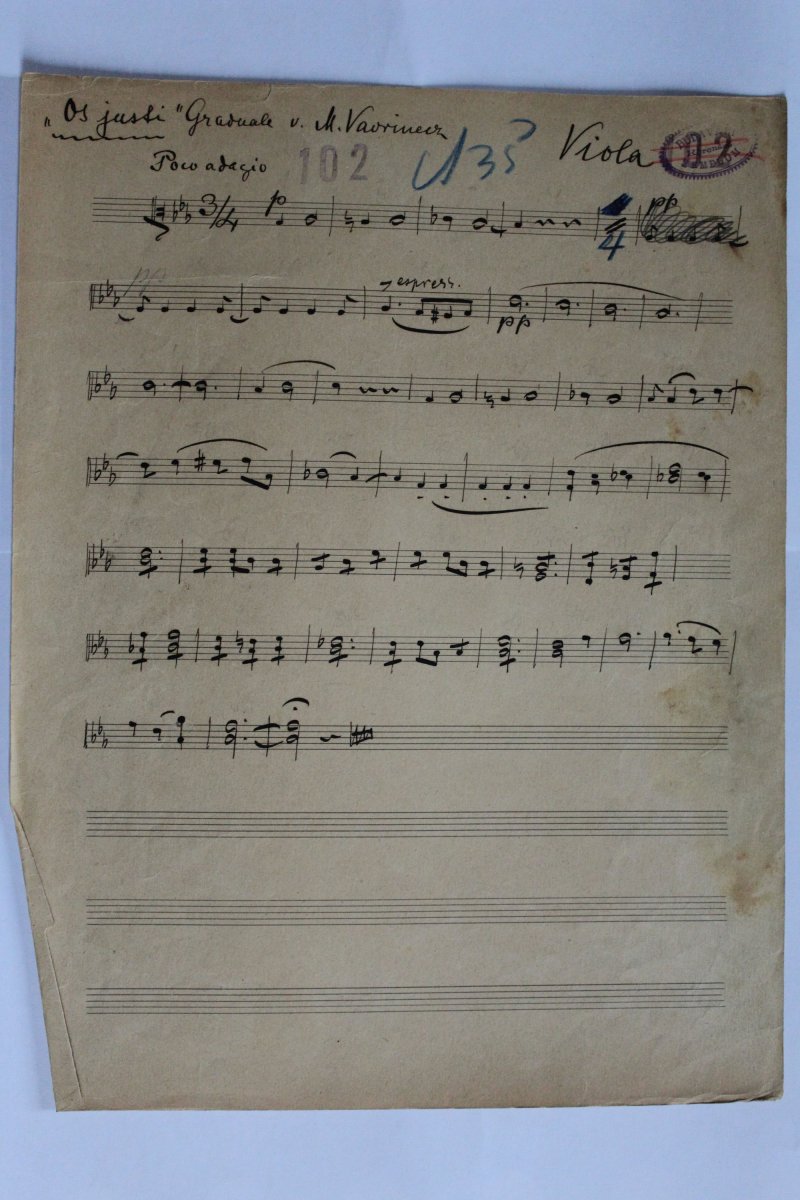 „Os justi“ Graduale v. M. Vavrinecz
Viola
Poco adagio
102
135
102
3/4
p
4
pp
pp
espress.
pp